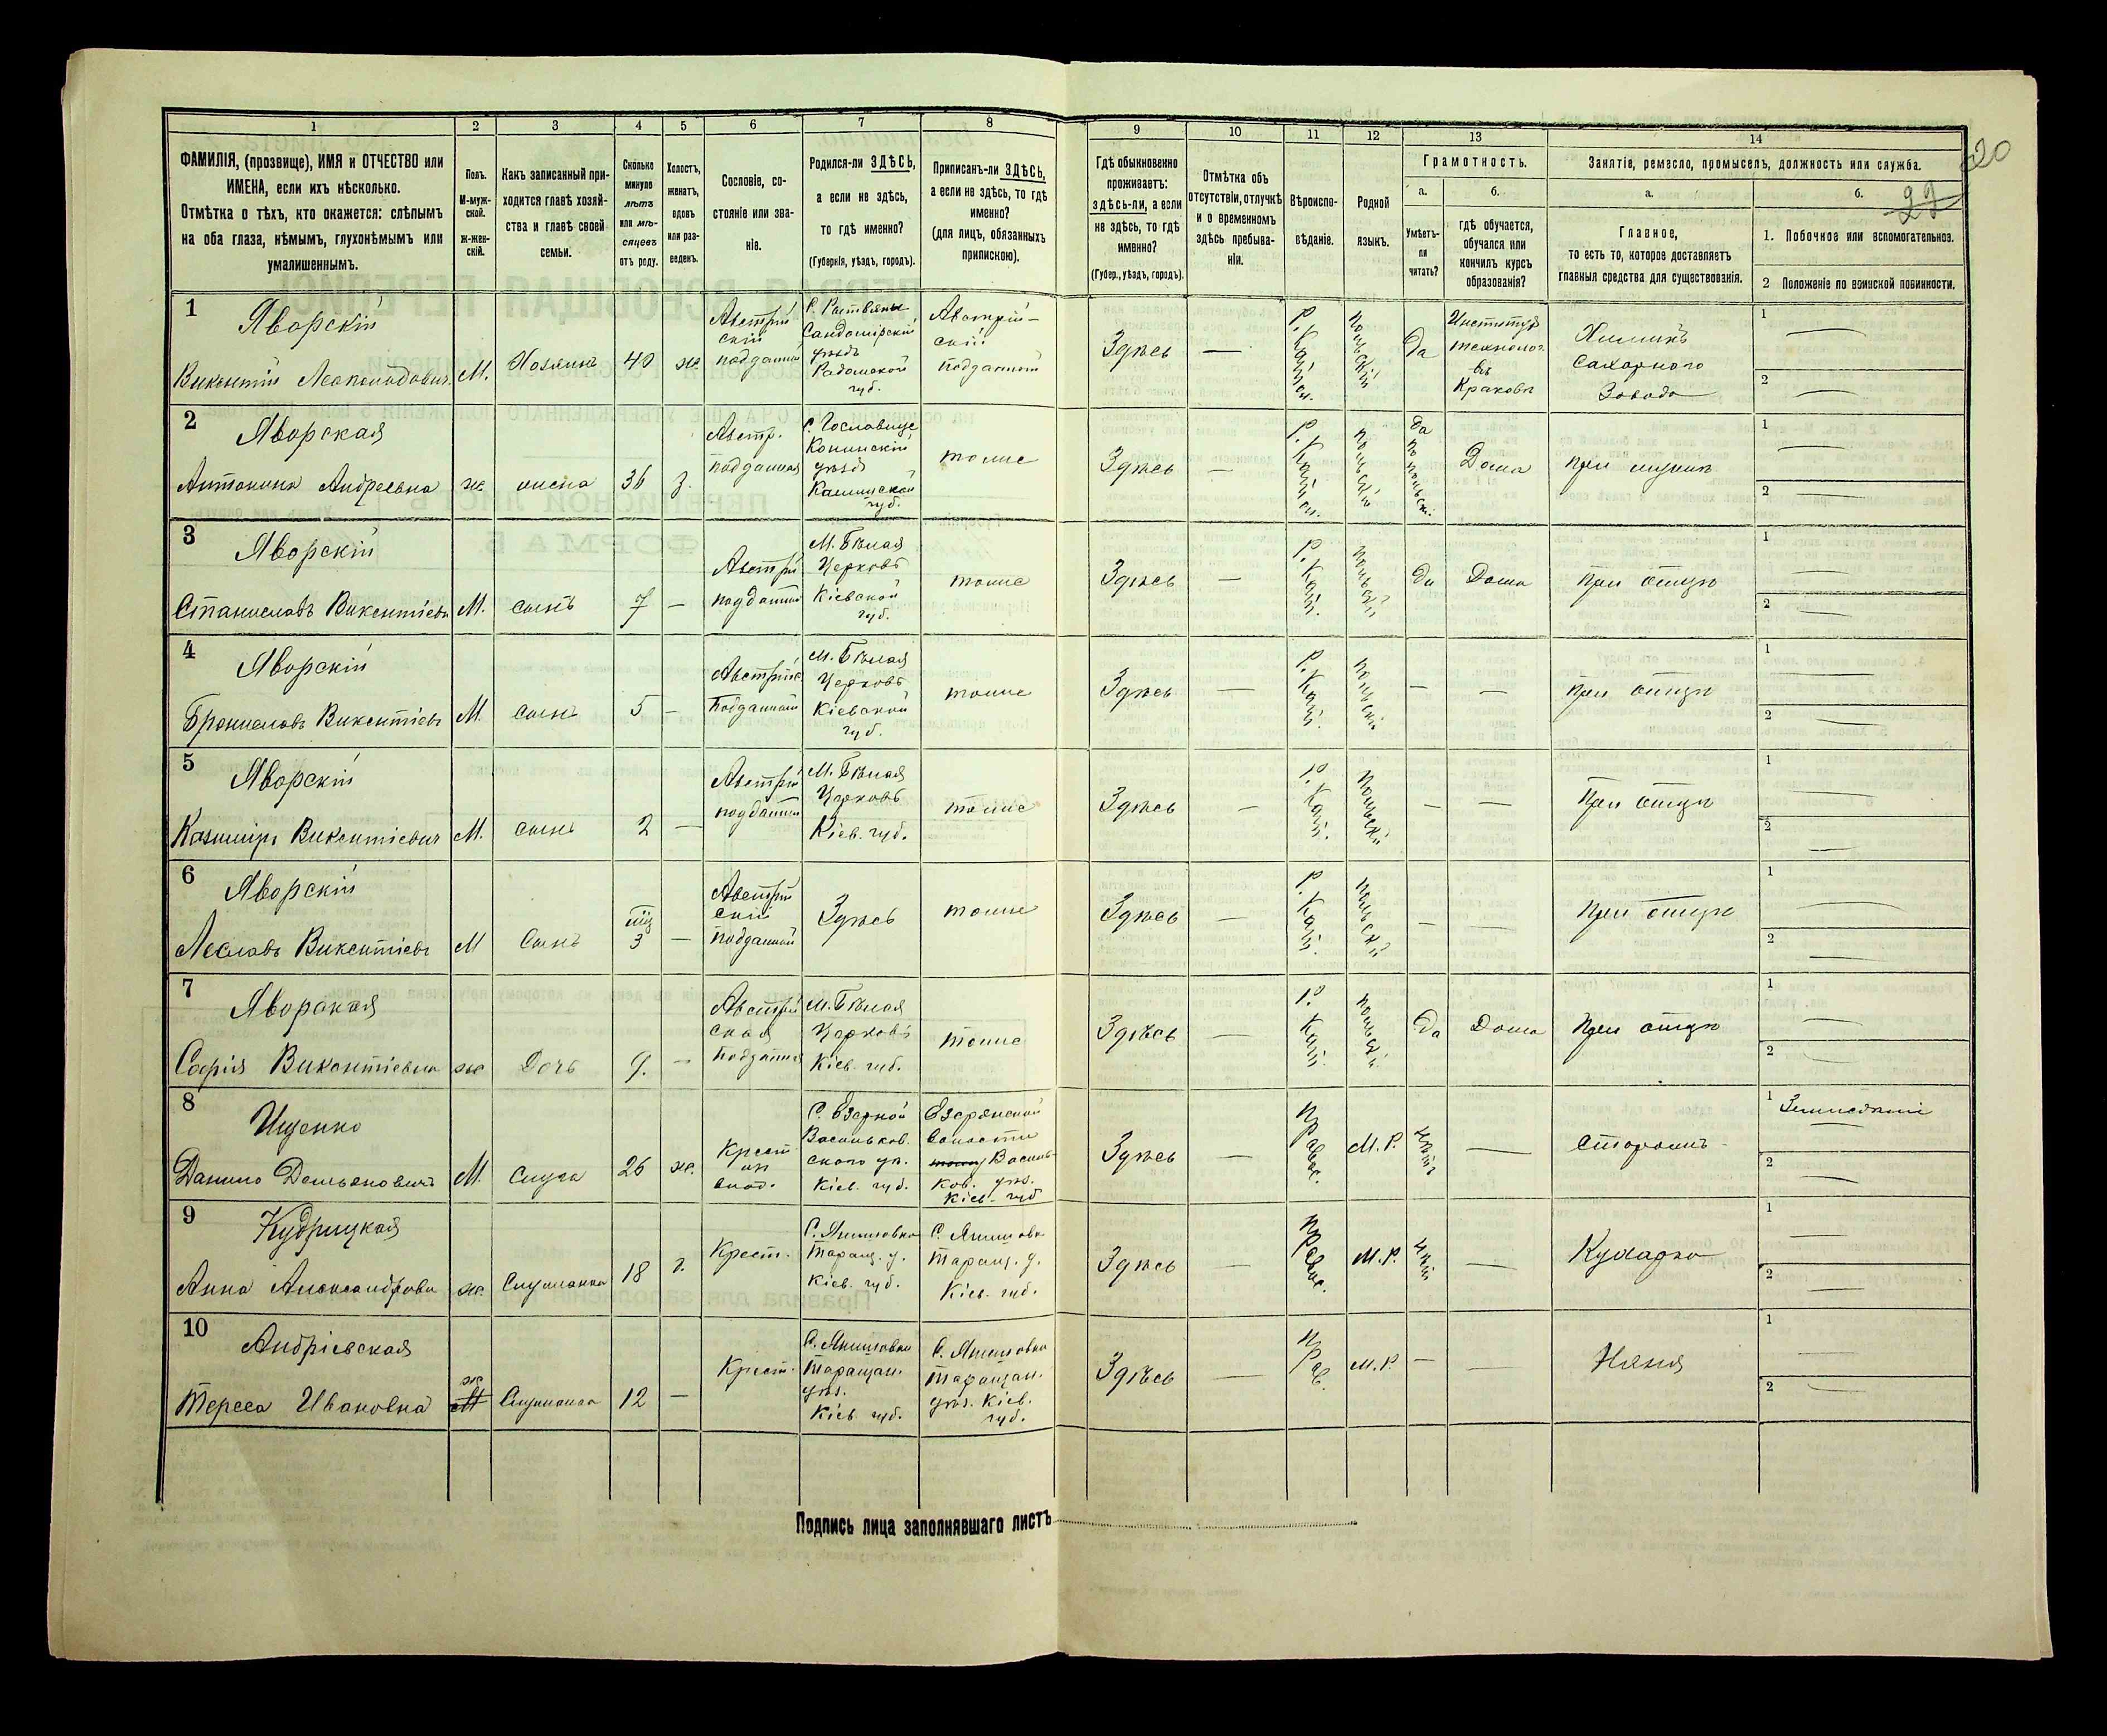 1 2 3 4 5 6 7 8 9 10 11 12 13 14
ФАМИЛІЯ, (прозвище), ИМЯ и ОТЧЕСТВО или
ИМЕНА, если ихъ нѣсколько.
Отмѣтка о тѣхъ, кто окажется: слѣпымъ
на оба глаза, нѣмымъ, глухонѣмымъ или
умалишеннымъ.
Полъ.
М-муж-
ской.
ж-жен-
скій.
Какъ записанный при-
ходится главѣ хозяй-
ства и главѣ своей
семьи.
Сколько
минуло
лѣтъ
или мѣ-
сяцевъ
отъ роду.
Холостъ,
женатъ,
вдовъ
или раз-
веденъ.
Сословіе, со-
стояніе или зва-
ніе.
Родился-ли ЗДѢСЬ,
а если не здѣсь,
то гдѣ именно?
(Губернія, уѣздъ, городъ).
Приписанъ-ли ЗДѢСЬ,
а если не здѣсь, то гдѣ
именно?
(для лицъ, обязанныхъ
припискою).
Гдѣ обыкновенно
проживаетъ:
здѣсь-ли, а если
не здѣсь, то гдѣ
именно?
(Губер., уѣздъ, городъ).
Отмѣтка объ
отсутствіи, отлучкѣ
и о временномъ
здѣсь пребыва-
ніи.
Вѣроиспо-
вѣданіе.
Родной
языкъ.
Грамотность.
а.
б.
Умѣетъ-
ли
читать?
гдѣ обучается,
обучался или
кончилъ курсъ
образованія?
Занятіе, ремесло, промыселъ, должность или служба.
а.
б.
Главное,
то есть то, которое доставляетъ
главныя средства для существованія.
1. Побочное или вспомогательное.
2 Положеніе по воинской повинности.
20
1
Яворскій
Викентій Леопольдович.
М.
Хозяинъ
40
ж.
Австрій
скій
подданный
Сандомірскій
уѣздъ
Радомской
губ.
Австрій-
скій
подданный
Здѣсь
—
Р. Катол.
Польскій
Да
Институт
технолог.
въ
Краковѣ
Химикъ
Сахарного
Завода
1 —
2 —
2
Яворская
Антонина Андреевна
ж.
жена
36
з.
Австр.
подданная
Конинскій
уѣздъ
Калишской
губ.
тоже
Здѣсь
—
Р. Катол.
Польскій
Да по польск.
Дома
при мужѣ
1 —
2 —
3
Яворскій
Станиславъ Викентіевъ
М.
сынъ
7
—
Австрій
подданный
М. Бѣлая
Церковь
Кіевской
губ.
тоже
Здѣсь
—
Р. Кат.
Польскій
Да
Дома
При отцѣ
1 —
2 —
4
Яворскій
Брониславъ Викентіевъ
М.
сынъ
5
—
Австрійс.
Подданный
М. Бѣлая
Церковь
Кіевской
губ.
тоже
Здѣсь
—
Р. Кат.
Польскій
—
—
при отцѣ
1 —
2 —
5
Яворскій
Казиміръ Викентіевич
М.
сынъ
2
—
Австрій
подданный
М. Бѣлая
Церковь
Кіев. губ.
тоже
Здѣсь
—
Р. Кат.
Польскій
—
—
При отцѣ
1 —
2 —
6
Яворскій
Леславъ Викентіевъ
М
Сынъ
3
—
Австрій
скій
подданный
Здѣсь
тоже
Здѣсь
—
Р. Кат.
Польскій
—
—
при отцѣ
1 —
2 —
7
Яворская
Софія Викентіевна
ж
Дочь
9.
—
Австрій
ская
подданная
М. Бѣлая
Церковь
Кіев. губ.
тоже
Здѣсь
—
Р. Кат.
Польскій
Да
Дома
При отцѣ
1 —
2 —
8
Ищенко
Данило Демьяновичъ
М.
Слуга
26
ж.
Васильков.
ского уѣ.
Кіев. губ.
волости
Василь-
ков. уѣз.
Кіев. губ
Здѣсь
—
Правос.
М.Р.
Нѣтъ
—
Сторожъ
1 —
2 —
9
Кудрицкая
Анна Александрова
ж.
Служанка
18
Крест.
Таращ. у.
Кіев. губ.
Таращ. у.
Кіев. губ.
Здѣсь
—
Правос.
М.Р.
Нѣт
—
Кухарка
1 —
2 —
10
Андріевская
Тереса Ивановна
ж
Служанка
12
—
Крест.
Таращан.
уѣз.
Кіев. губ.
Таращан.
уѣз. Кіев.
губ.
Здѣсь
—
Прав.
М.Р.
—
—
Няня
1 —
2 —
Подпись лица заполнявшаго листъ